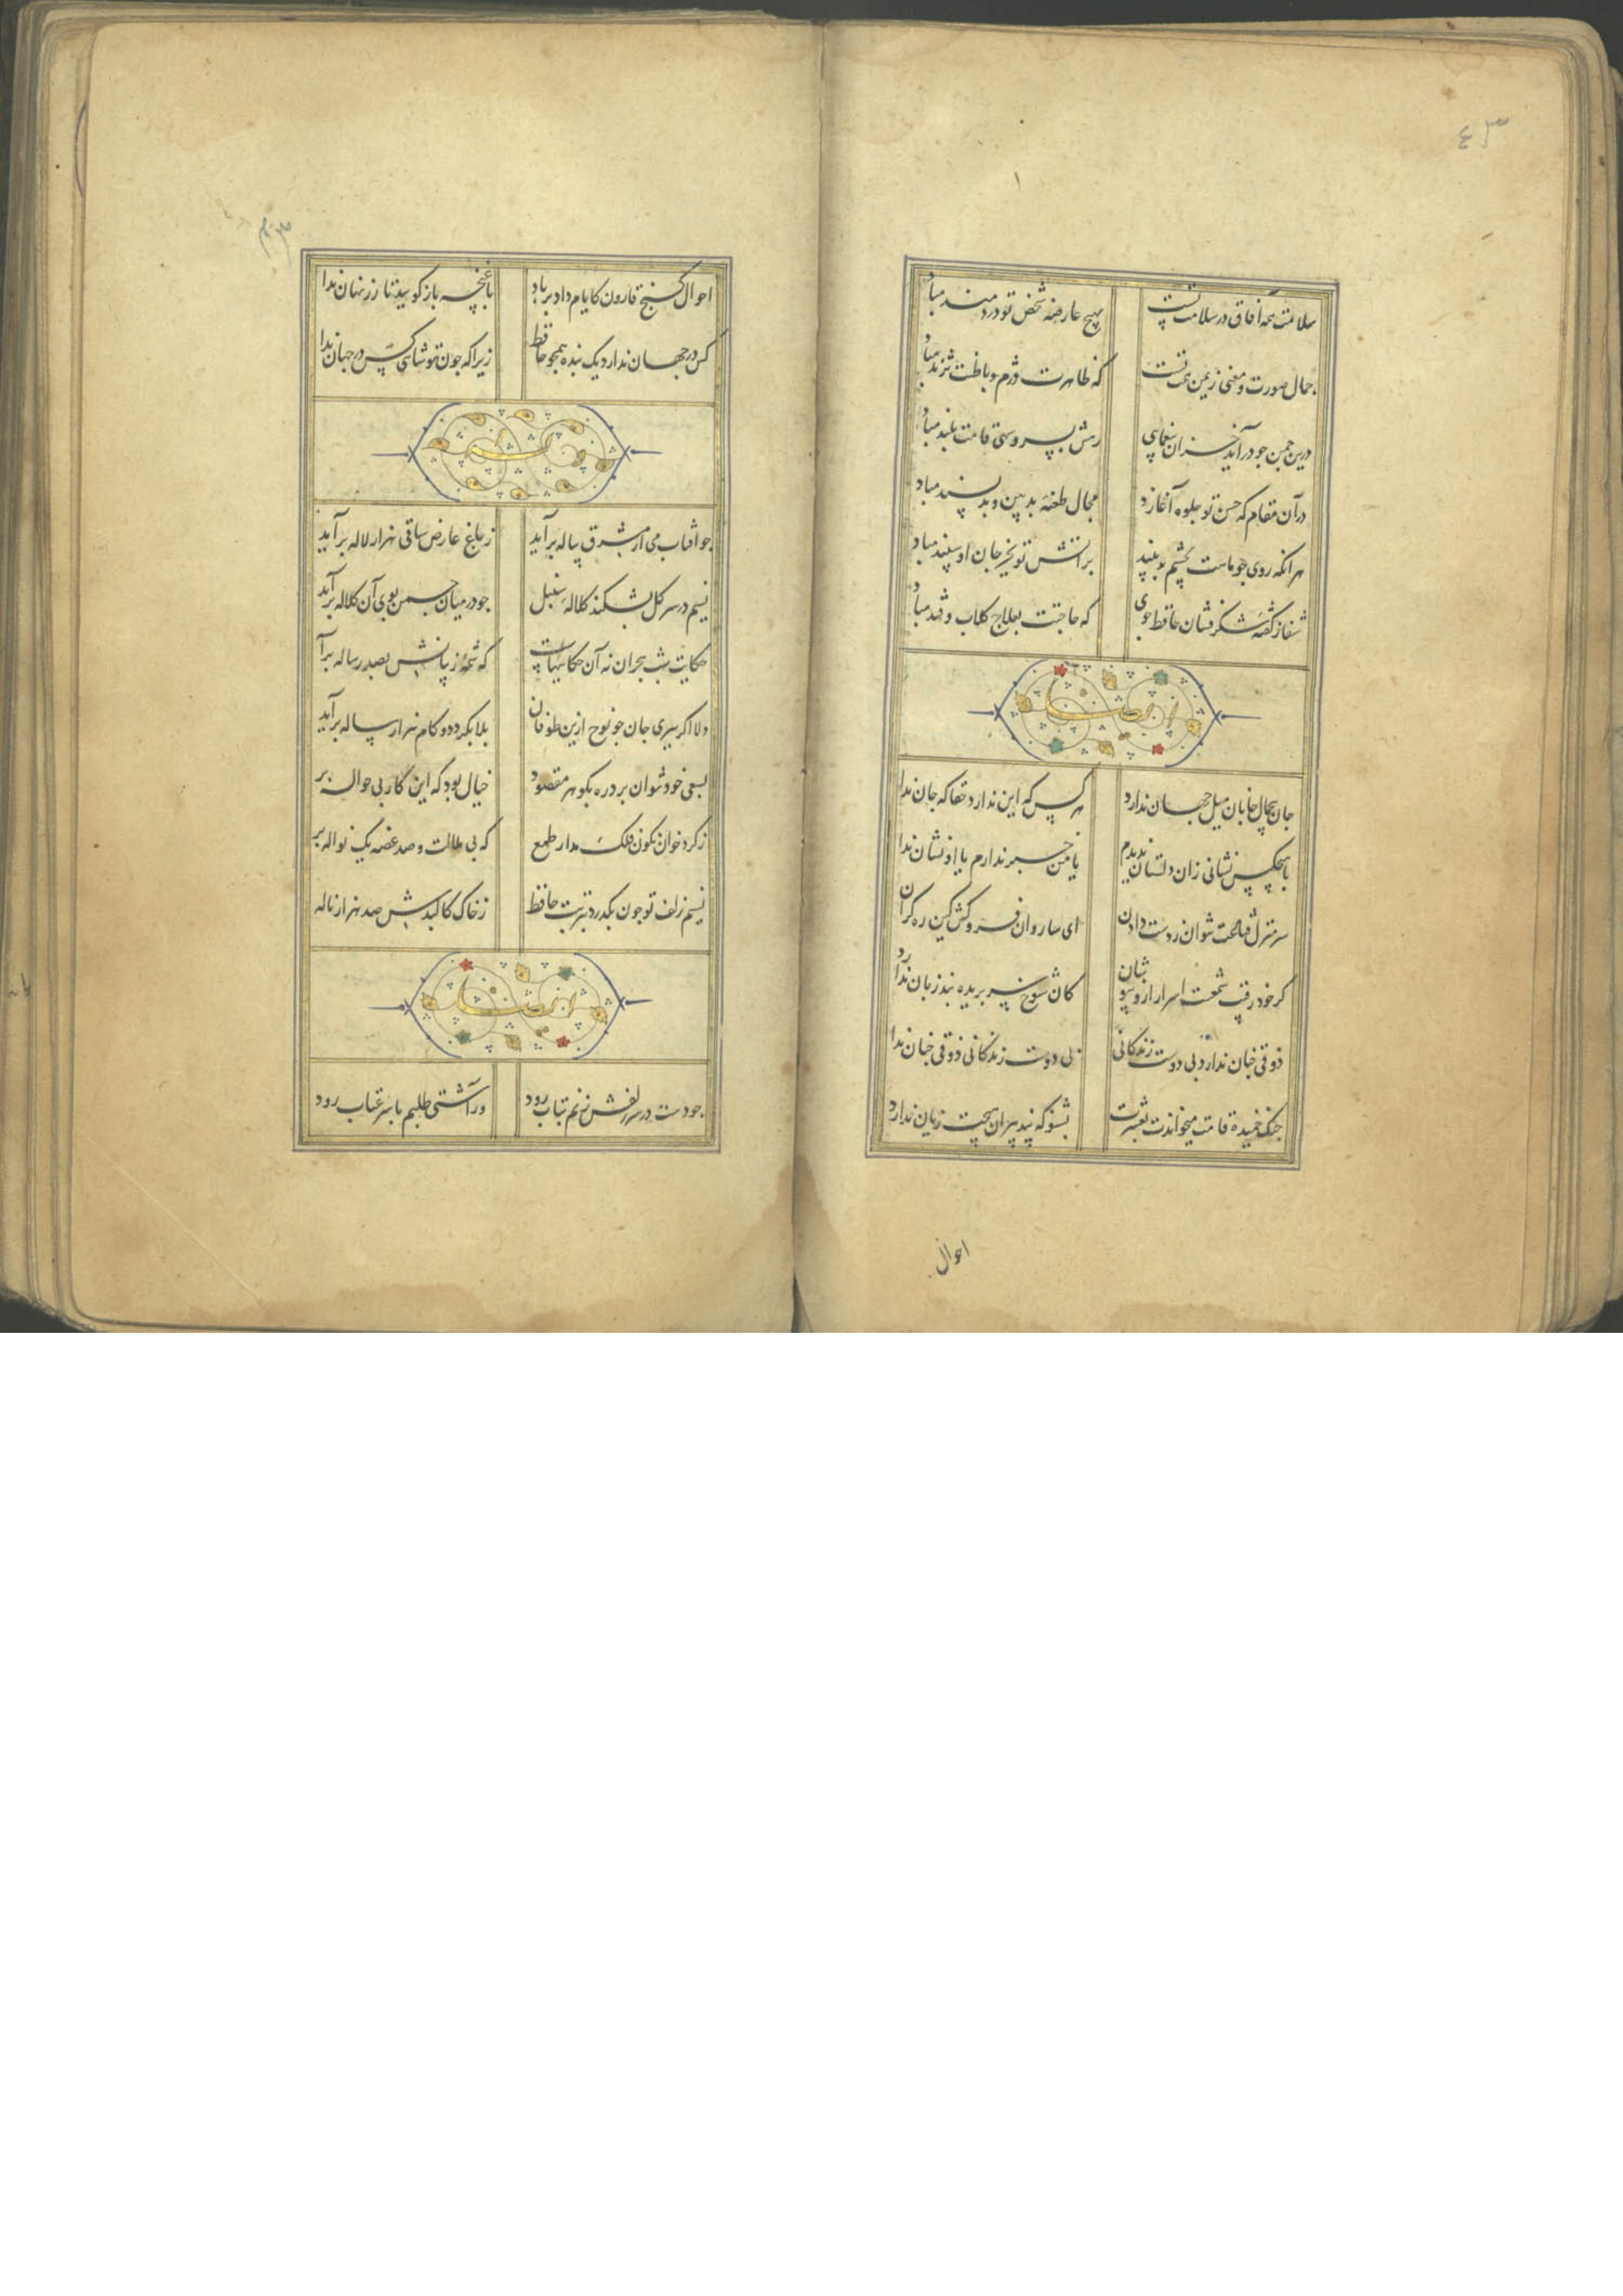 سلامت همه آفاق در سلامت تست بهیچ عارضه شخص تو دردمند مباد
جمال صورت و معنی ز یمن همت تست که ظاهرت دژم و باطنت نژند مباد
درین چمن جو درآید خزان بیغمایی رهش بسرو سهی قامت بلند مباد
در آن مقام که حسن تو جلوه آغازد مجال طعنه بدبین و بدپسند مباد
هر آنکه روی جو ماهت بچشم بد بیند بر آتش تو بجز جان او سپند مباد
شفا ز گفته شکرفشان حافظ جوی که حاجتت بعلاج گلاب و قند مباد
ایضا
جان بی جمال جانان میل جهان ندارد هر کس که این ندارد حقا که جان ندا
با هیچکس نشانی زان دلستان ندیدم یا من خبر ندارم یا او نشان ندا
سر منزل قناعت نتوان ز دست دادن ای ساروان فروکش کین ره کران ندارد
گر خود رقیب شمعست اسرار ازو بپوشان کان شوخ سر بریده بند زبان ندارد
ذوقی جنان ندارد بی دوست زندگانی بی دوست زندگانی ذوقی جنان ندا
جنگ خمیده قامت میخواندت بعشرت بشنو که پند پیران هیچت زیان ندارد
احوال
احوال گنج قارون کایام داد بر باد با غنچه باز گویید تا زر نهان ندا
کس در جهان ندارد یک بنده همجو حافظ زیرا که جون تو شاهی کس در جهان ندا
جو آفتاب می از مشرق پیاله برآید ز باغ عارض ساقی هزار لاله برآید
نسیم در سر گل بشکند کلاله سنبل جو در میان جمن بوی آن کلاله برآید
حکایت شب هجران نه آن حکایتهاست که شمه ز بیانش بصد رساله برآ
دلا اگر ببری جان جو نوح ازین طوفان بلا بگردد و کام هزار ساله برآید
بسعی خود نتوان برد ره بگوهر مقصود خیال بود که این کار بی حواله بر
ز گرد خوان نگون فلک مدار طمع که بی ملالت و صد غصه یک نواله بر
نسیم زلف تو جون بگذرد بتربت حافظ ز خاک کالبدش صد هزار ناله
ایضا
جو دست در سر زلفش زنم بتاب رود ور آشتی طلبم با سر عتاب رود